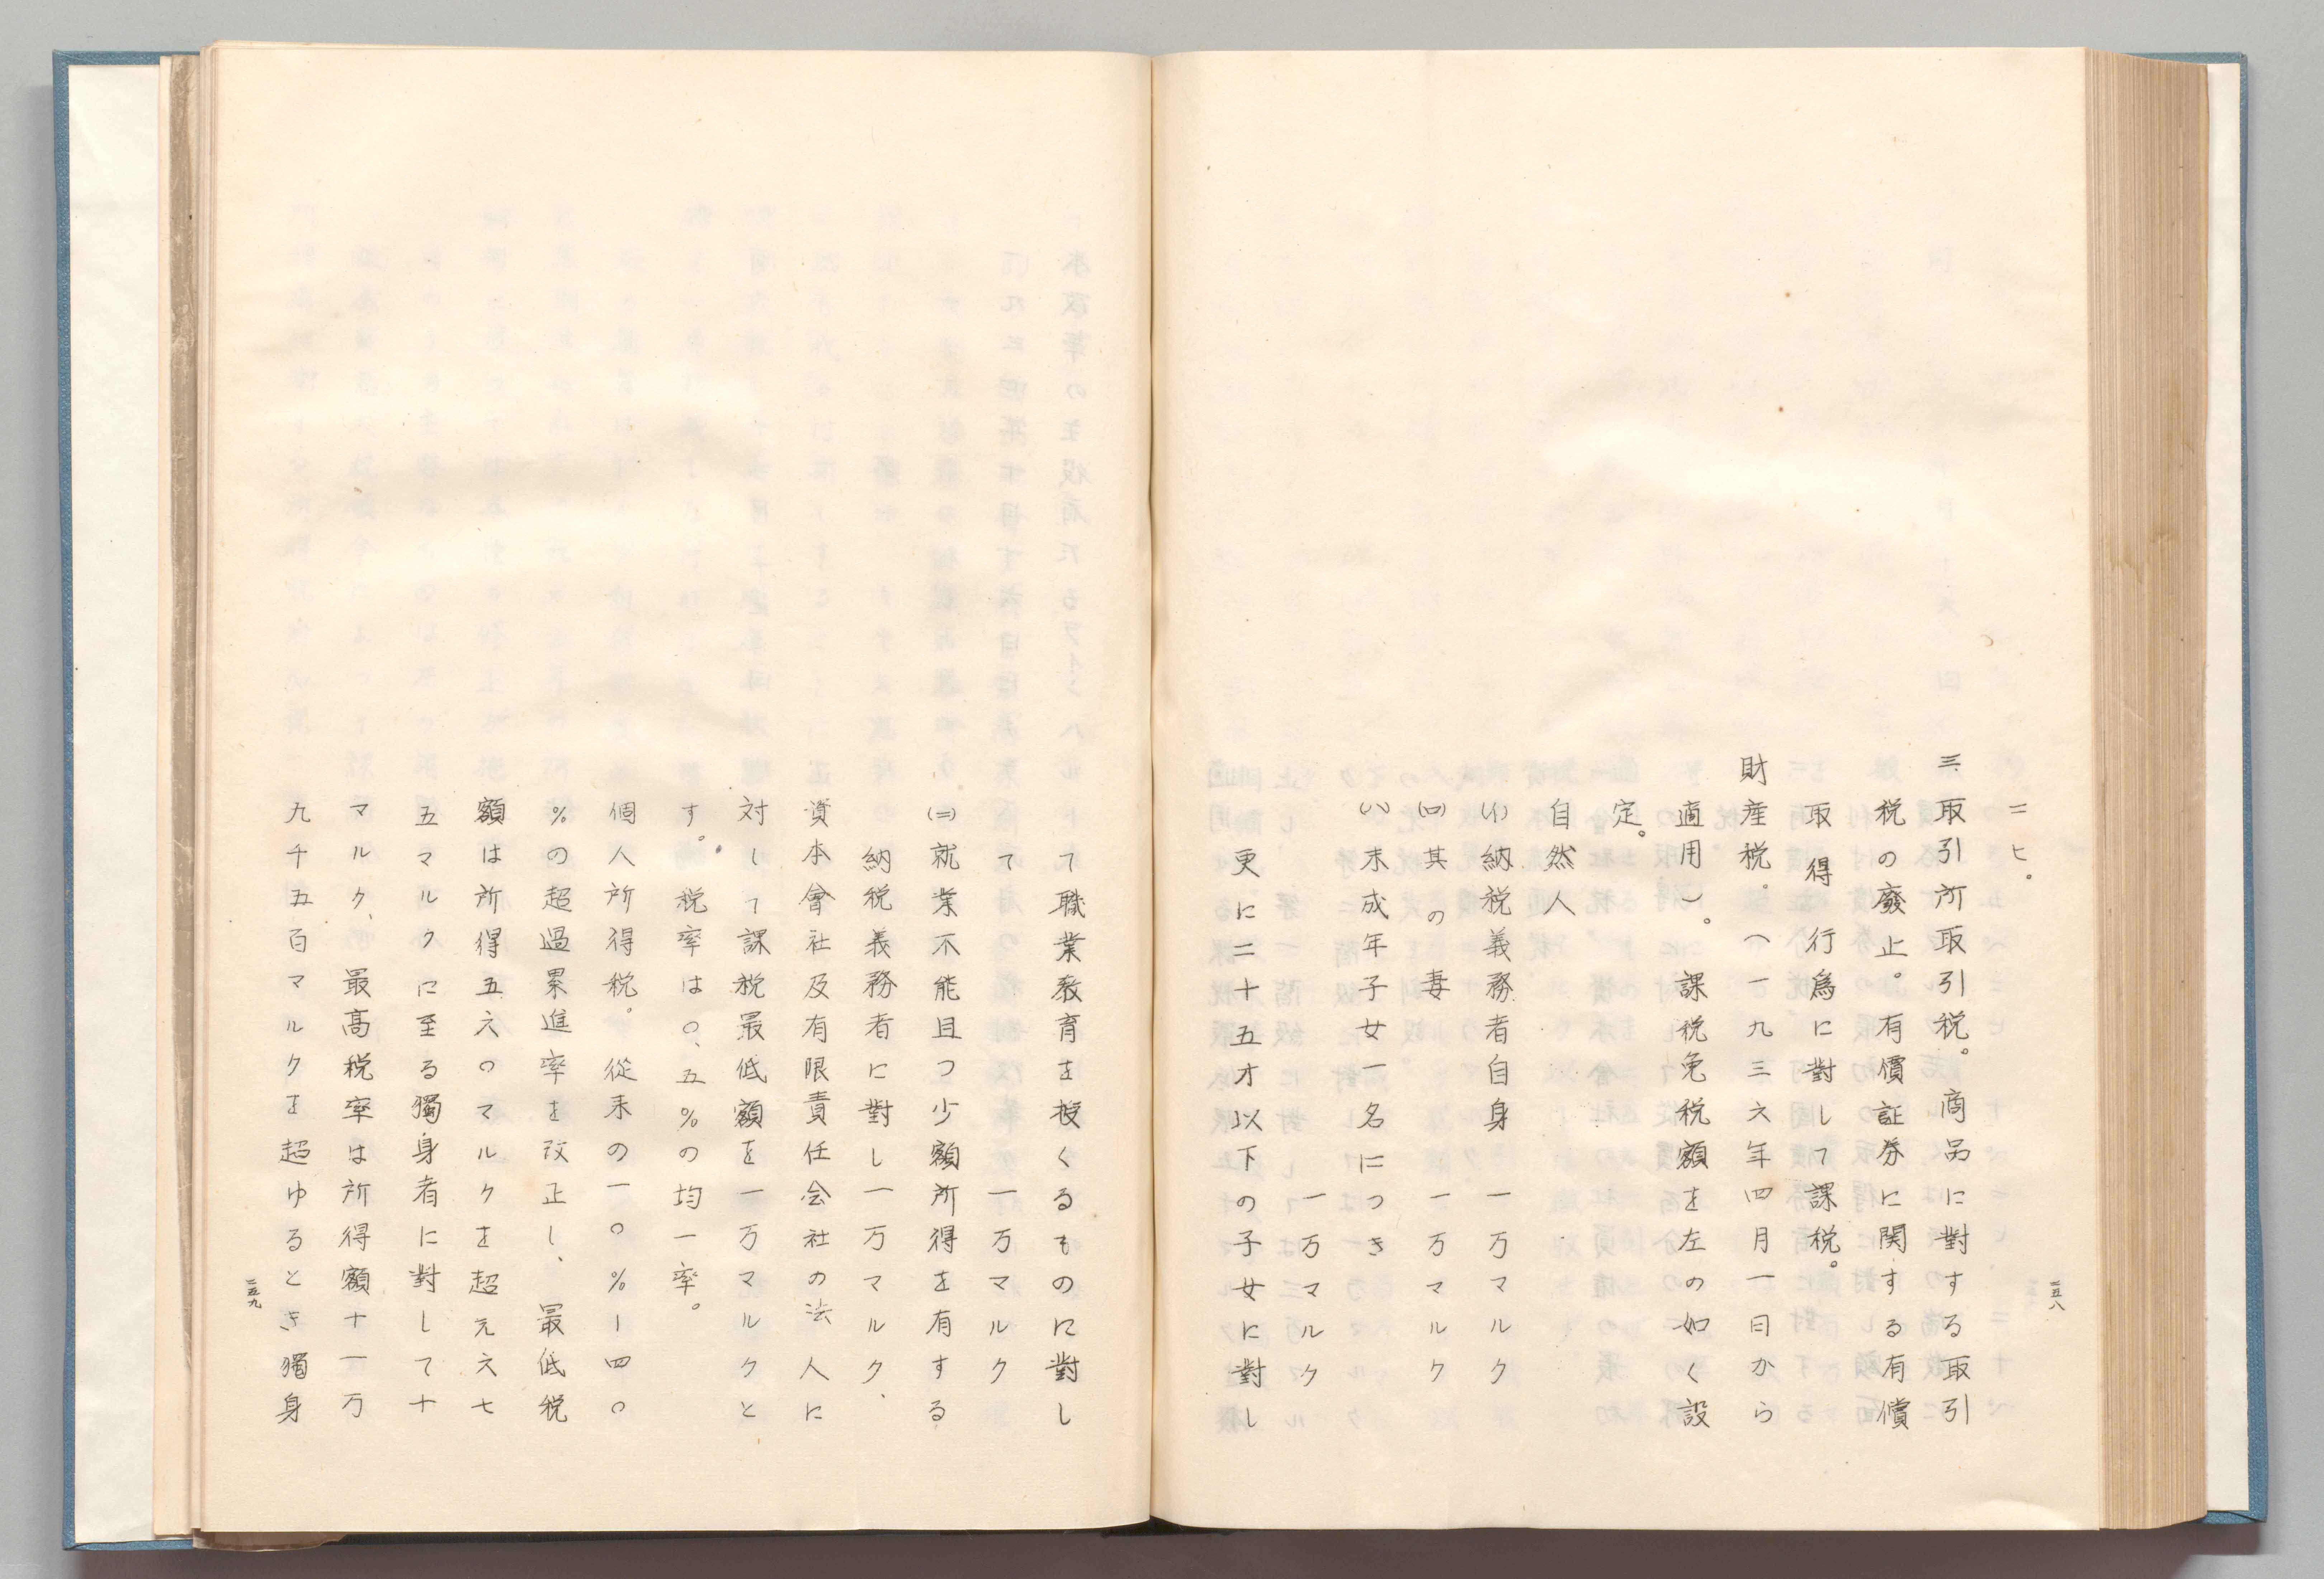 二ヒ。
三、取引所取引税。商品に對する取引
税の廢止。有價証券に関する有償
取得行爲に對して課税。
財産税。（一九三六年四月一日から
適用）。課税免税額を左の如く設
定。
自然人
(イ)納税義務者自身　一万マルク
(ロ)其の妻　一万マルク
(ハ)未成年子女一名につき
一万マルク
更に二十五才以下の子女に對し
二五八
て職業教育を授くるものに對し
て　一万マルク
(ニ)就業不能且つ少額所得を有する
納税義務者に對し一万マルク、
資本會社及有限責任会社の法人に
対して課税最低額を一万マルクと
す。税率は〇、五％の均一率。
個人所得税。從来の一〇％ー四〇
％の超過累進率を改正し、最低税
額は所得五六〇マルクを超元六七
五マルクに至る獨身者に對して十
マルク、最高税率は所得額十一万
九千五百マルクを超ゆるとき獨身
二五九